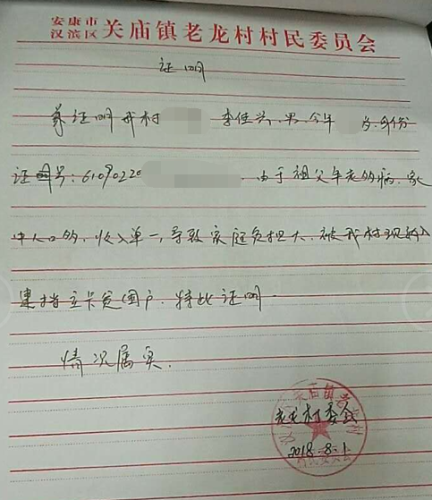 安康市
汉滨区 关庙镇老龙村村民委员会
证明
兹证明我村 李佳兴.男.今年 岁.身份
证号:61090220 由于祖父年老多病.家
中人口多,收入单一,导致家庭负担大.被我村现纳入
建档立卡贫困户.特此证明.
情况属实.
老龙村委会
2018.8.1